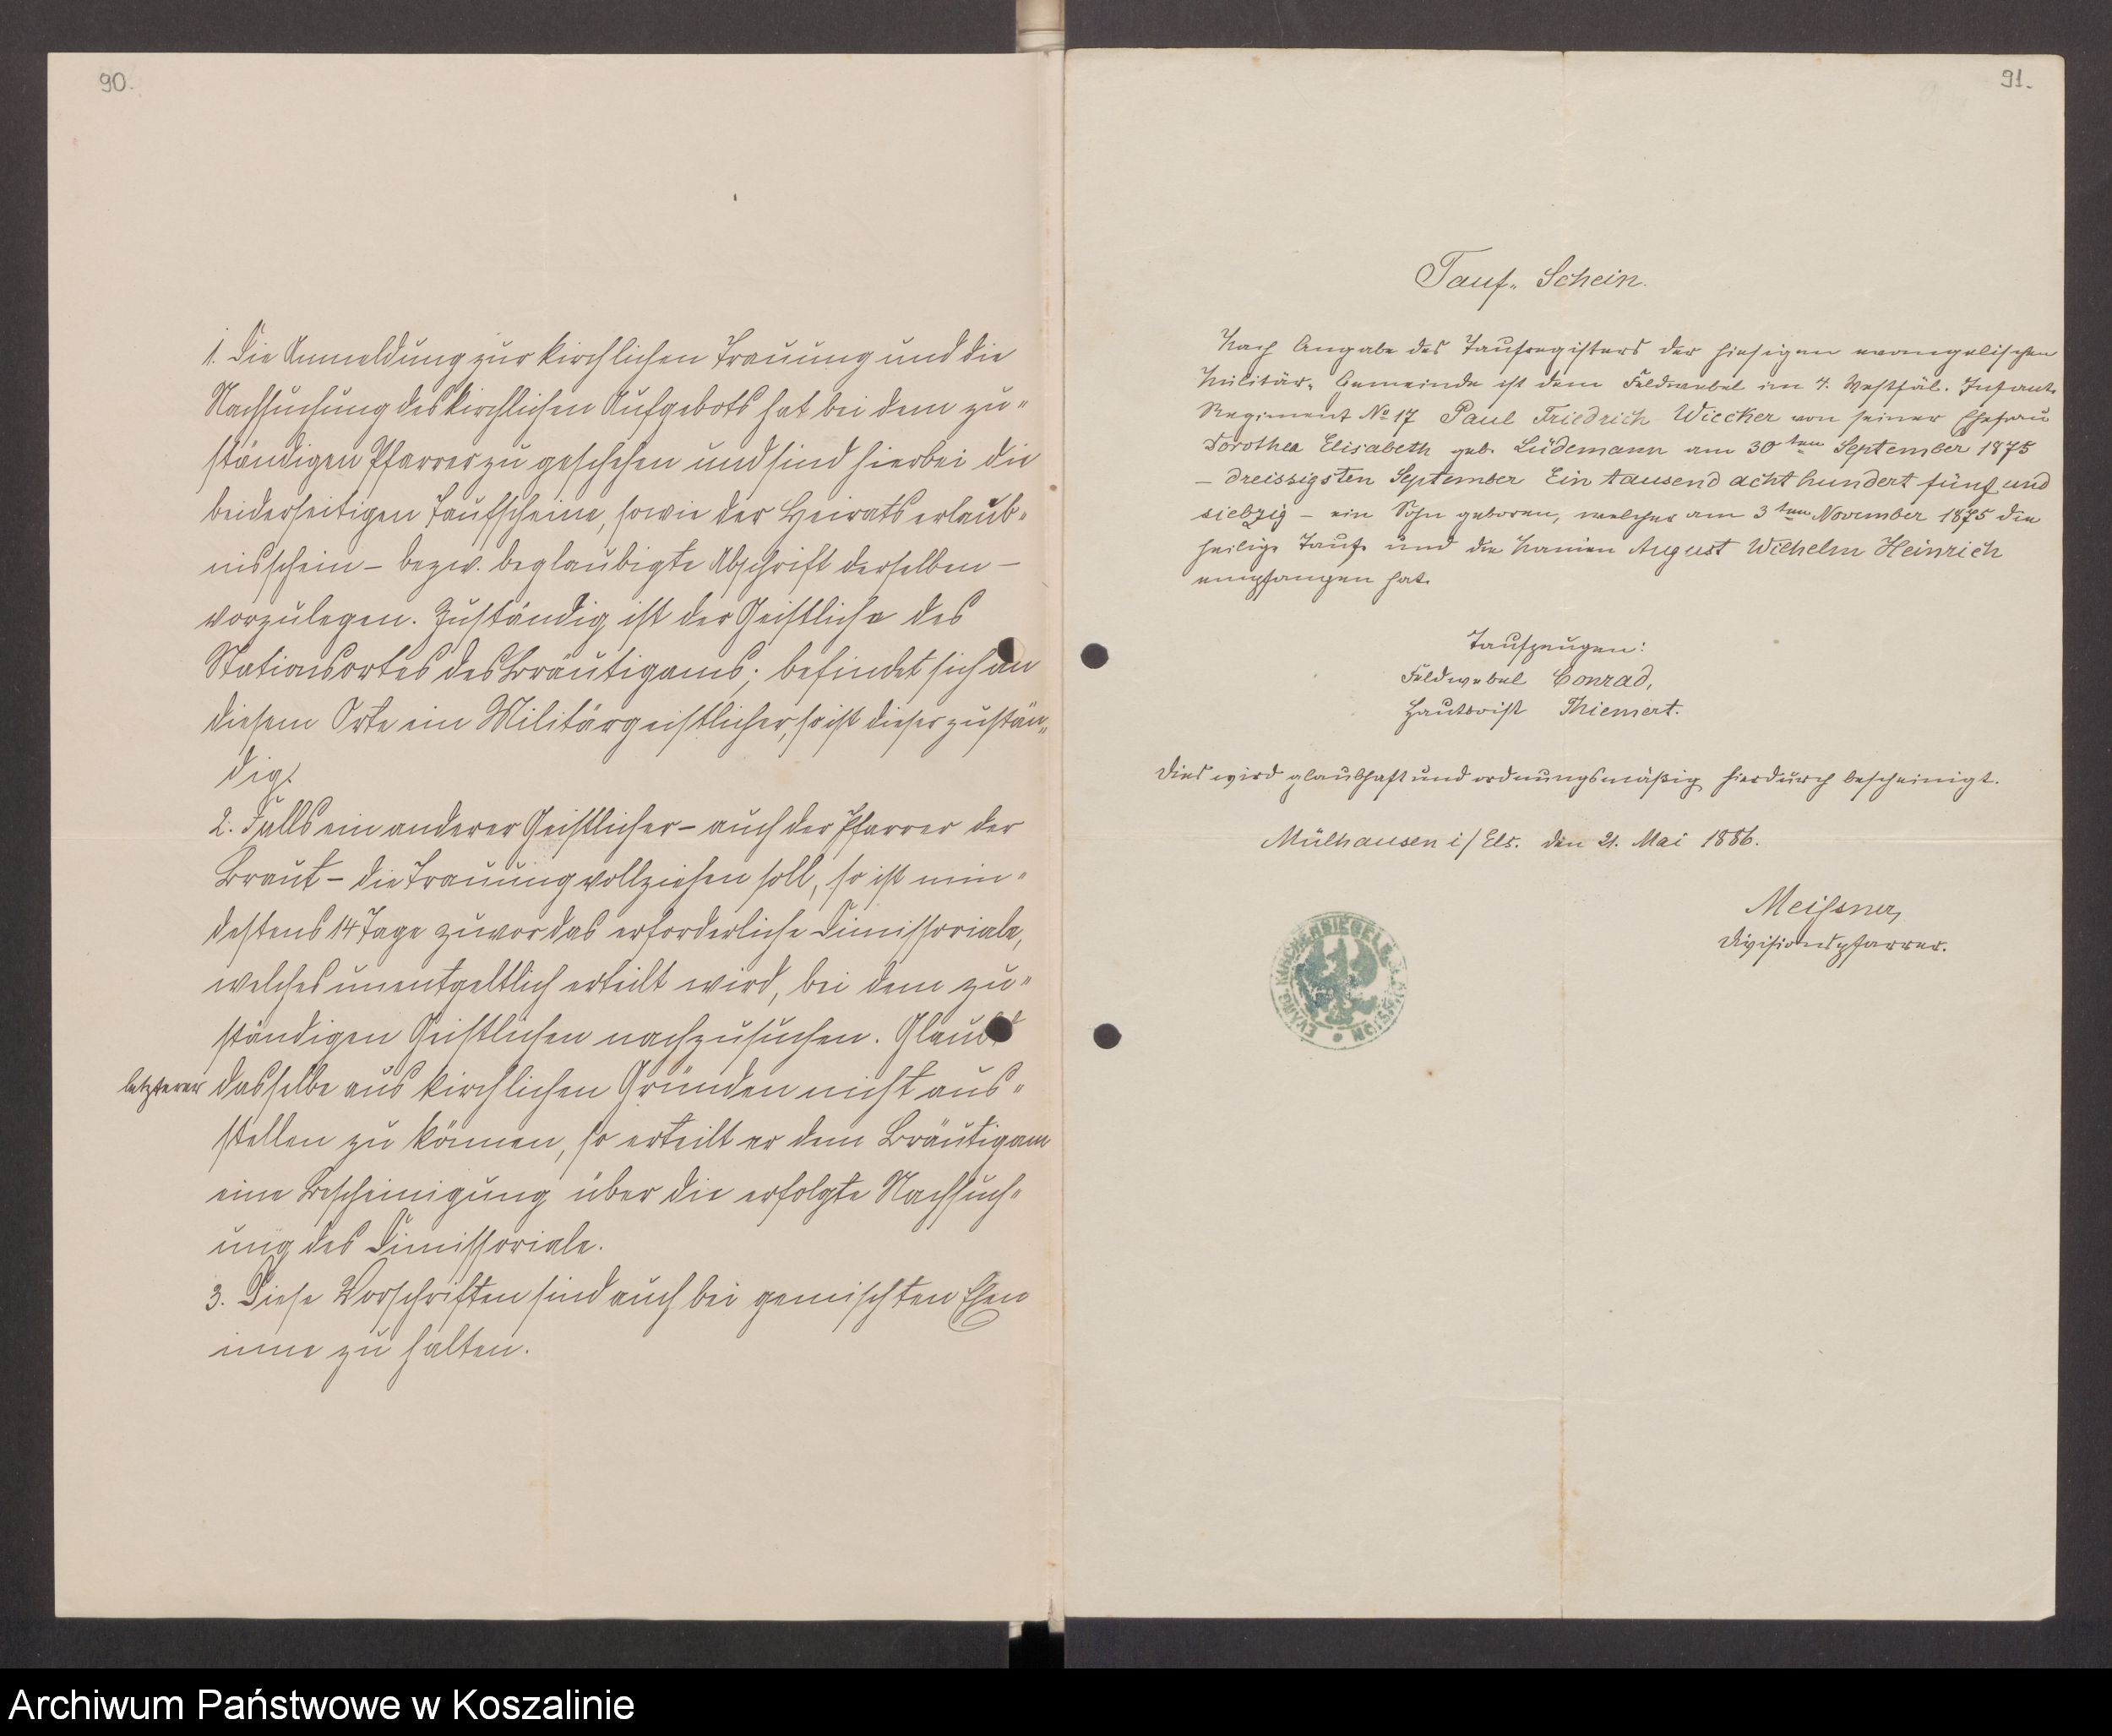 90.
1. Die Anmeldung zur kirchlichen Trauung und die
Nachsuchung des kirchlichen Aufgebots hat bei dem zu=
ständigen Pfarrer zu geschehen und sind hierbei die
beiderseitigen Taufscheine, sowie der Heiratserlaub=
nisschein – bezw. beglaubigte Abschrift derselben –
vorzulegen. Zuständig ist der Geistliche des
Stationsortes des Bräutigams; befindet sich an
diesem Orte ein Militärgeistlicher, so ist dieser zustän=
dig.
2. Falls ein anderer Geistlicher – auch der Pfarrer der
Braut – die Trauung vollziehen soll, so ist min=
destens 14 Tage zuvor das erforderliche Dimissoriale,
welches unentgeltlich erteilt wird, bei dem zu=
ständigen Geistlichen nachzusuchen. Glaubt
letzterer dasselbe aus kirchlichen Gründen nicht aus=
stellen zu können, so erteilt er dem Bräutigam
eine Bescheinigung über die erfolgte Nachsuch=
ung des Dimissoriale.
3. Diese Vorschriften sind auch bei gemischten Ehen
inne zu halten.
91.
Tauf= Schein.
Nach Angabe des Taufregisters der hiesigen evangelischen
Militär= Gemeinde ist dem Feldwebel im 4. Westfäl. Infant.
Regiment No 17 Paul Friedrich Wiecker von seiner Ehefrau
Dorothea Elisabeth geb. Lüdemann am 30ten September 1875
– dreissigsten September Ein tausend acht hundert fünf und
siebzig – ein Sohn geboren, welcher am 3ten November 1875 die
heilige Taufe und die Namen August Wilhelm Heinrich
empfangen hat.
Taufzeugen:
Feldwebel Conrad,
Hautboist Thiemert.
Dies wird glaubhaft und ordnungsmäßig hierdurch bescheinigt.
Mülhausen i/Els. den 21. Mai 1886.
Meissner,
Divisionspfarrer.
EVANG. KIRCHENSIEGEL DIVISION
Archiwum Państwowe w Koszalinie